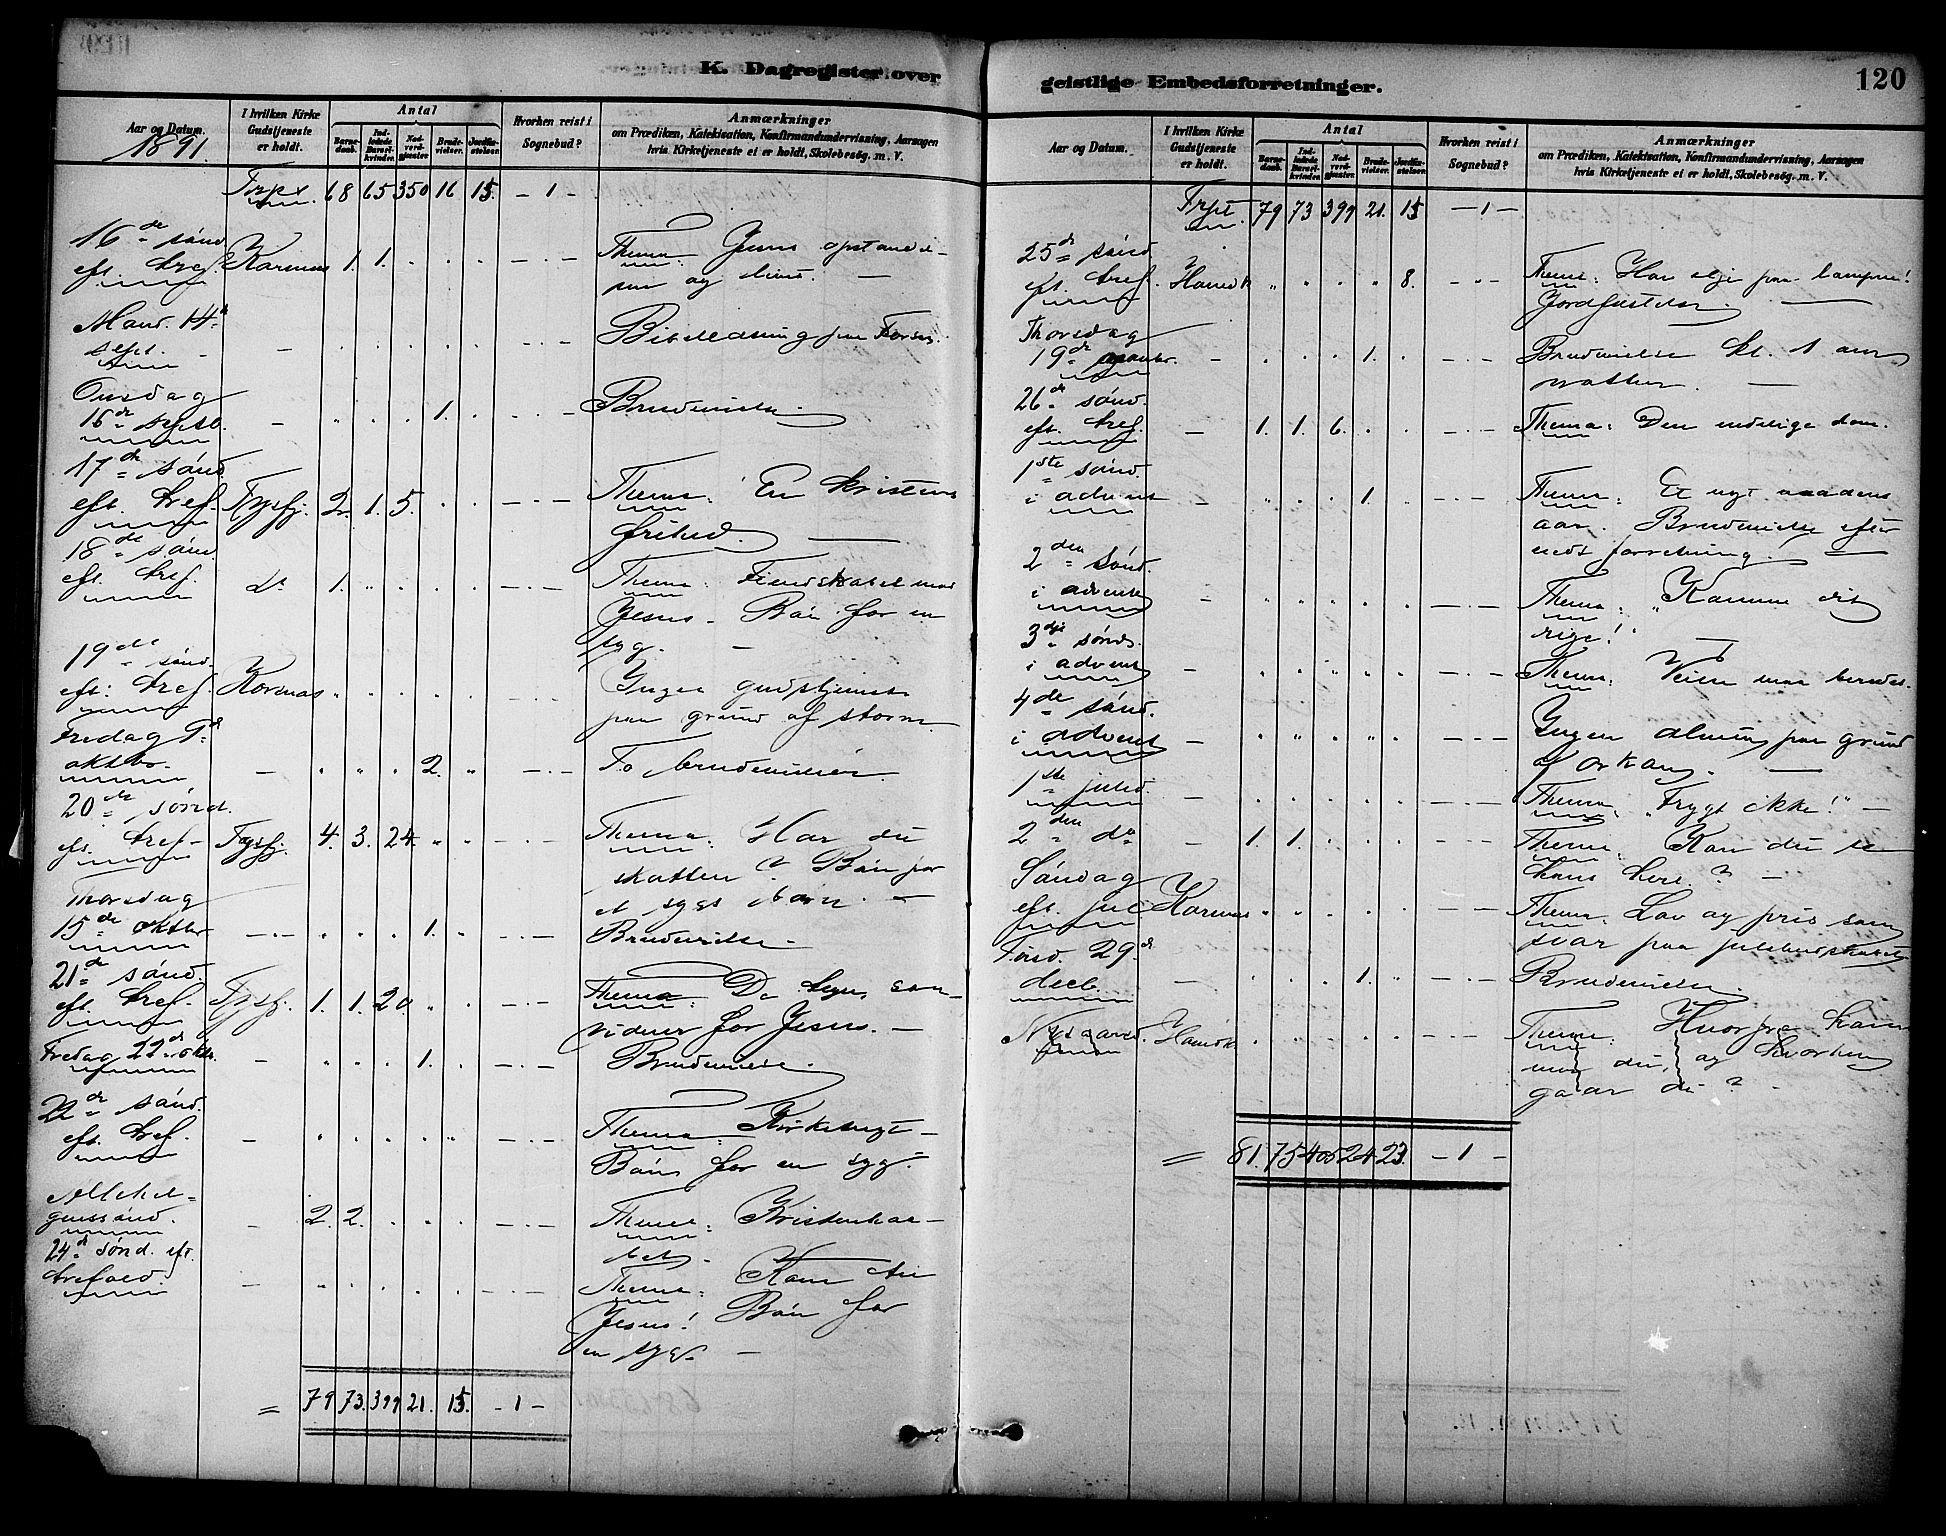 K. Dagregister over
Aar og Datum. I hvilken Kirke Gudstjeneste er holdt. Antal Barnedaab. Indledede Barselkvinder. Nadverdgjæster. Brudevielser. Jordfæstelser. Hvorhen reist i Sognebud? Anmærkninger om Prædiken, Katekisation, Konfirmandundervisning, Aarsagen hvis Kirketjeneste ei er holdt, Skolebesög. m. V.
1891.
68 65 350 16 15. - 1 -
16de sønd.
eft. tref. Korsnæs 1. 1. Thema: Jesus opstandel-
sen og livet.
Mand. 14d
sept. - Bibellæsning paa
Onsdag
16de septb. - 1. Brudevielse.
17de sønd.
eft. tref. Tysfj. 2. 1. 5. Thema: En kristens
frihed.
18de sønd.
eft. tref. do 1. Thema: Fiendskabet mod
Jesus. Bøn for en
syg.
19de sønd.
eft. tref. Korsnæs Ingen gudstjeneste
paa grund af storm.
Fredag 9d
oktbr. - 2. To brudevielser
20de sønd.
eft. tref. Tysfj. 4. 3. 24. Thema: Har du
skatten? Bøn for
et sygt barn.
Thorsdag
15de oktbr - 1. Brudevielse.
21de sønd.
eft. tref. Tysfj. 1. 1. 20 Thema: De tegn, som
vidner for Jesus.
Fredag 22d oktb. - 1. Brudevielse.
22de sønd.
eft. tref. - Thema: Kirketugt
Bøn for en syg.
Allehel-
genssønd. - 2. 2. Thema: Kristenhaa-
bet.
24d sønd. eft.
trefold. - Thema: Kom til
Jesus! Bøn for
en syg.
= 79 73. 399 21. 15. - 1 -
geistlige Embedsforretninger.
120
Aar og Datum. I hvilken Kirke Gudstjeneste er holdt. Antal Barnedaab. Indledede Barselkvinder. Nadverdgjæster. Brudevielser. Jordfæstelser. Hvorhen reist i Sognebud? Anmærkninger om Prædiken, Katekisation, Konfirmandundervisning, Aarsagen hvis Kirketjeneste ei er holdt, Skolebesög. m. V.
79 73 399 21. 15 - 1 -
25de sønd.
eft. tref. 8. Thema: Har olje paa lampene!
Jordfæstelser.
Thorsdag
19de novbr. - 1. Brudevielse kl. 1 om
natten.
26de sønd.
eft. tref. - 1. 1. 6. Thema: Den endelige dom.
1ste sønd.
i advent - 1. Thema: Et nyt naadens
aar. Brudevielse efter
endt forretning.
2den sønd.
i advent - Thema: "Komme dit
rige!"
3dje sønd.
i advent - Thema: Veien maa beredes.
4de sønd.
i advent - Ingen almue paa grund
af orkan.
1ste juled. - Thema: "Frygt ikke!"
2den do - 1. 1. Thema: Kan du se
hans
Søndag
eft. jul Korsnæs Thema: Lov og pris som
svar paa julebudskabet
Tirsd. 29d
decb. - 1. Brudevielse.
Nytaarsd. Thema: Hvorfra kom
du, og hvorhen
gaar du?
= 81. 75 405 24. 23. - 1 -